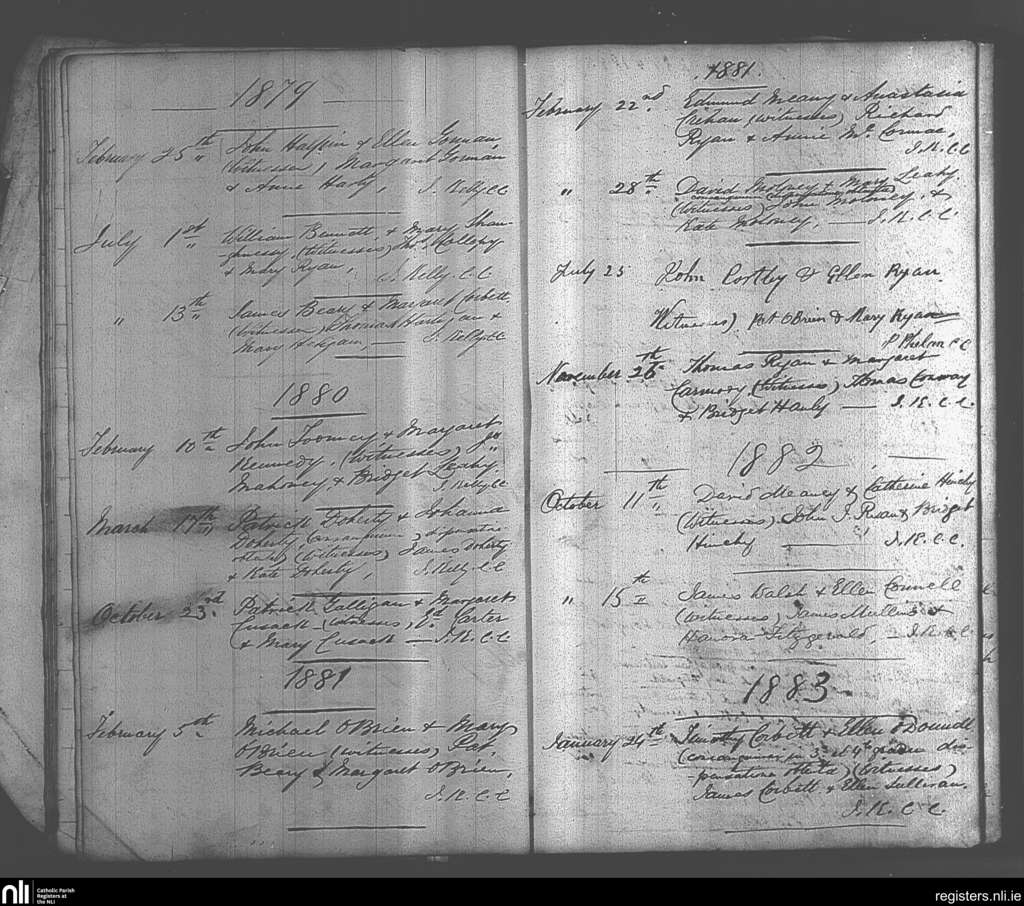 1879
February 25th John Haskin & Ellen Gorman,
(Witnesses) Margaret Gorman
& Annie Harty, J. Kelly CC
July 1st William Bennett & Mary Shau-
ghnessy, (Witnesses) Thos.
& Mary Ryan, J. Kelly. C.C
" 13th James Beary & Margaret Corbett
(Witnesses) Thomas &
Mary Ryan, — J. Kelly CC
1880
February 10th John Toomey & Margaret
Kennedy, (Witnesses) Jno
Mahoney & Bridget Leahy.
J. Kelly CC
March 17th Patrick Doherty & Johanna
Doherty, (consanguin) dispensatione
obtenta) (Witnesses) James Doherty
& Kate Doherty, J. Kelly. C.C
October 23rd Patrick Galligan & Margaret
Cusack (witnesses) Carter
& Mary Cusack — J.K. C.C
1881
February 5th Michael O'Brien & Mary
O'Brien (witnesses) Pat.
Beary & Margaret O'Brien,
J.K. C.C
1881.
February 22nd Edmund Meany & Anastasia
(witnesses) Richard
Ryan & Annie McCormac,
J.K. C.C
" 28th David Moloney & Mary Leahy
(witnesses) John Moloney, &
Kate Moloney, — J.K. C.C.
July 25 John Corthy & Ellen Ryan
Witnesses) Pat OBrein & Mary Ryan
P Phelan CC
November 26th Thomas Ryan & Margaret
Carmody (Witnesses) Thomas Conway
& Bridget Hanly — J.K. C.C.
1882
October 11th David Meaney & Catherine Hinchy
(Witnesses) John J. Ryan & Bridget
Hinchy — J.K. C.C.
" 15th James Walsh & Ellen Connell
(witnesses) James Mullens &
Hanora Fitzgerald, — J.K. C.C
1883
January 24th Timothy Corbett & Ellen O'Donnell
(consanguin in 3 et 4th gradu dis-
pensatione obtenta) (Witnesses)
James Corbett & Ellen Sullivan.
J.K. C.C.
nli Catholic Parish
Registers at
the NLI
registers.nli.ie